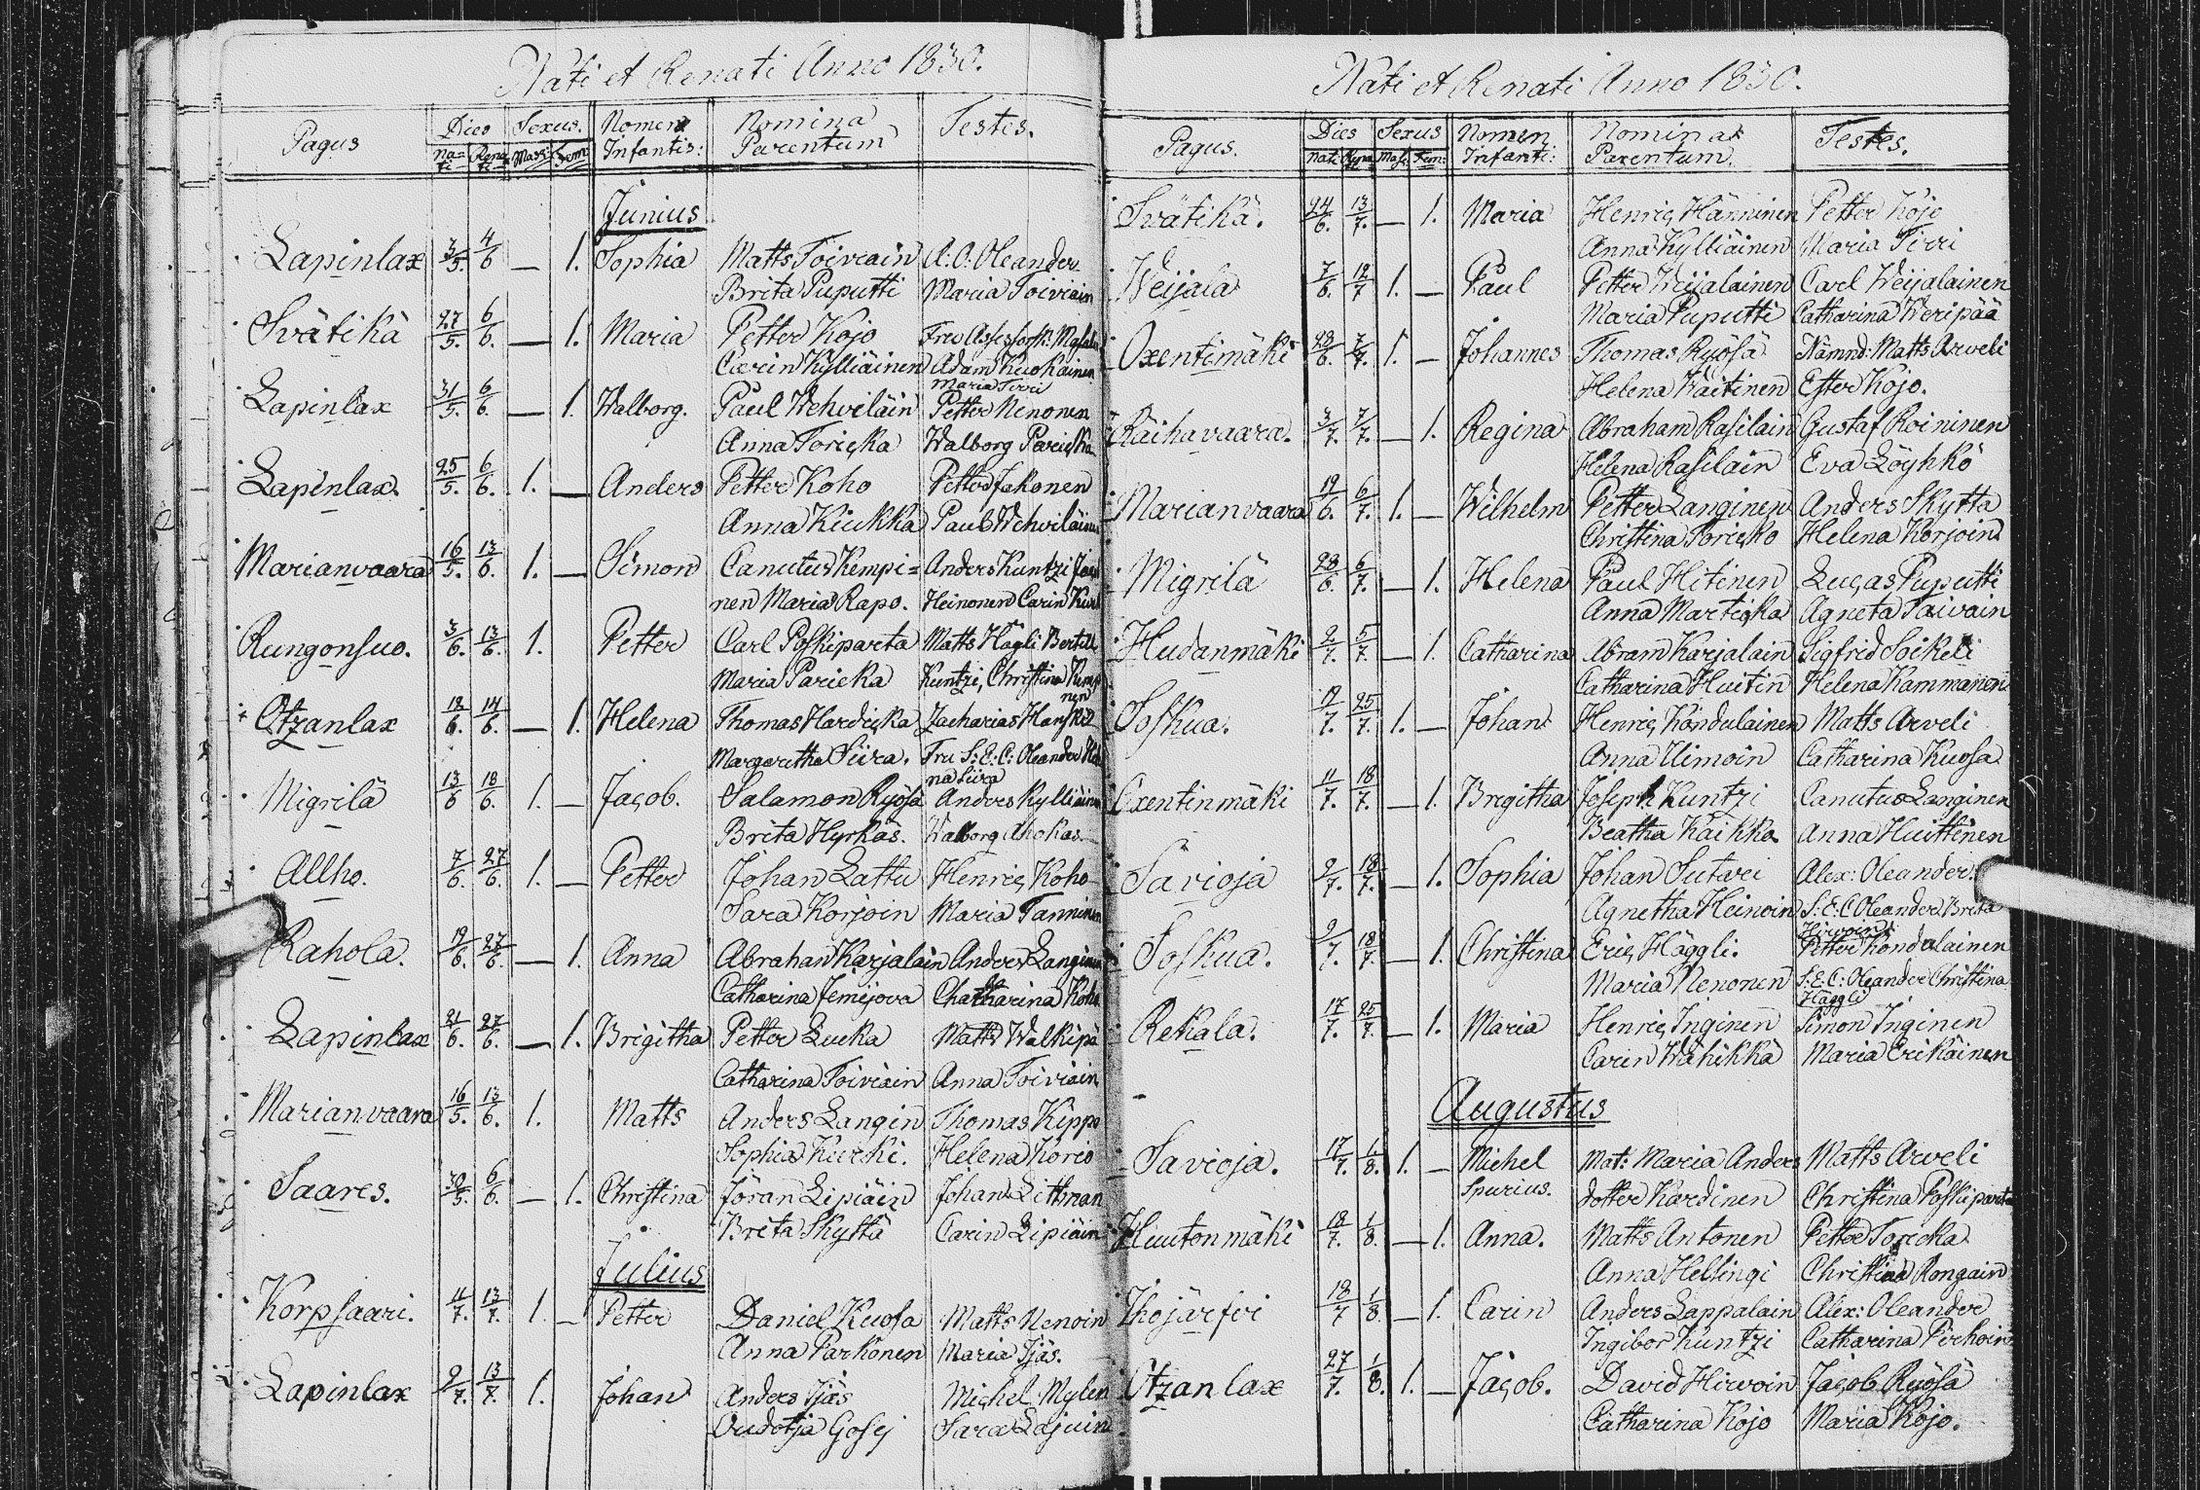 Nati et Renati Anno 1830.
Pagus Dies Sexus. Nomen Nomina Testes.
Na= Rena Masc: Fem: Infantis: Parentum
ti ti
Junius
Lapinlax 3/5. 4/6 — 1. Sophia Matts Toiviain A: O: Oleander
Brita Puputti Maria Toiviain
Svätikä 27/5. 6/6. — 1. Maria Petter Kojo Fru
Carin Kylliäinen Adam Kuokainen
Maria Tirri
Lapinlax 31/5. 6/6. — 1. Walborg. Paul Wehviläin Petter Nenonen
Anna Toricka Walborg Paricka
Lapinlax. 25/5. 6/6. 1. — Anders Petter Koho Petter Jakonen
Anna Kiukka Paul Wehviläin
Marianvaara 16/5. 13/6. 1. — Simon Canutus Kempi= Anders Kuntzi
nen Maria Rapo. Heinonen Carin
Rungonsuo. 3/6. 13/6. 1. Petter Carl Poskiparta Matts Hägli Bertill
Maria Paricka Kuntzi, Christina
nen
Otzanlax 12/6. 14/6. — 1. Helena Thomas Hardicka Zacharias
Margaretha Siira. Fru S: E: C: Oleander
na Siira
Migrilä 13/6 18/6. 1. — Jacob. Salamon Ryösä Anders Kylliäin
Brita Hyrkäs. Walborg Ahokas
Allho. 7/6. 27/6. 1. — Petter Johan Lattu Henric Koho
Sara Korjoin Maria Tanninen
Rahola. 19/6. 27/6. — 1. Anna Abraham Karjalain Anders Langinen
Catharina Jemijova Chatharina Koho
Lapinlax 21/6. 27/6. — 1. Brigitha Petter Lucka Matts Walkipä
Catharina Toiviain Anna Toiviain
Marianvaara 16/5. 13/6. 1. Matts Anders Langin Thomas Kippo
Sophia Kurki. Helena Korio
Saares. 30/5. 6/6. — 1. Christina Jöran Lipiäin Johan Littman
Brita Skyttä Carin Lipiäin
Julius
Korpsaari. 11/7. 13/7. 1. — Petter Daniel Kuosa Matts Nenoin
Anna Parkonen Maria Tjäs.
Lapinlax 9/7. 13/7. 1. Johan Anders Tjäs Michel Mylen
Oudotja Gosej Sara Lajuin
Nati et Renati Anno 1830.
Pagus. Dies Sexus Nomen Nomina Testes.
Nati Rena Masc: Fem: Infanti: Parentum.
Svätikä. 24/6. 13/7. — 1. Maria Henric Hänninen Petter Kojo
Anna Kylliäinen Maria Tirri
Weijala 7/6. 12/7 1. — Paul Petter Weijalainen Carl Weijalainen
Maria Puputti Catharina Weripää
Oxentimäki 28/6. 7/7. 1. — Johannes Thomas Ryösä Nämnd: Matts Arveli
Helena Wäitinen Ester Kojo.
Räihavaara. 3/7. 7/7. — 1. Regina Abraham Rasilain Gustaf Roininen
Helena Rasilain Eva Löyhkö
Marianvaara 19/6. 6/7. 1. — Wilhelm Petter Langinen Anders Skytta
Christina Toricko Helena Korjoin
Migrilä 28/6. 6/7. — 1. Helena Paul Hitinen Lucas Puputti
Anna Marticka Agneta Taivain
Hudanmäki 2/7. 5/7. — 1. Catharina Abram Karjalain Sigfrid Soikeli
Catharina Huitin Helena Kammanen
Soskua. 17/7. 25/7. 1. — Johan Henric Kondulainen Matts Arveli
Anna Ilimoin Catharina Kuosa
Oxentinmäki 11/7. 18/7. — 1. Bregitha Joseph Kuntzi Canutus Langinen
Beatha Kaikka Anna Huittinen
Savioja 9/7. 18/7. — 1. Sophia Johan Sutari Alex: Oleander.
Agnetha Heinoin S: E: C Oleander Brita
Hirvoin
Soskua. 9/7. 18/7. — 1. Christina Eric Häggli. Petter Kondulainen
Maria Nenonen S: E: C: Oleander Christina
Häggli
Rekala. 17/7. 25/7. — 1. Maria Henric Inginen Simon Inginen
Carin Wahikka Maria Erikäinen
Augustus
Savioja. 17/7. 1/8. 1. — Michel Mat: Maria Anders Matts Arveli
Spurius. dotter Kardinen Christina Poskiparta
Huutonmäki 18/7. 1/8. — 1. Anna. Matts Antonen Petter Toricka
Anna Hellingi Christina Rongain
Ihojärfvi 18/7 1/8. — 1. Carin Anders Lappalain Alex: Oleander
Ingibor Kuntzi Catharina Pirhoin
Otzanlax 27/7. 1/8. 1. — Jacob. David Hirvoin Jacob Ryösä
Catharina Kojo Maria Kojo.